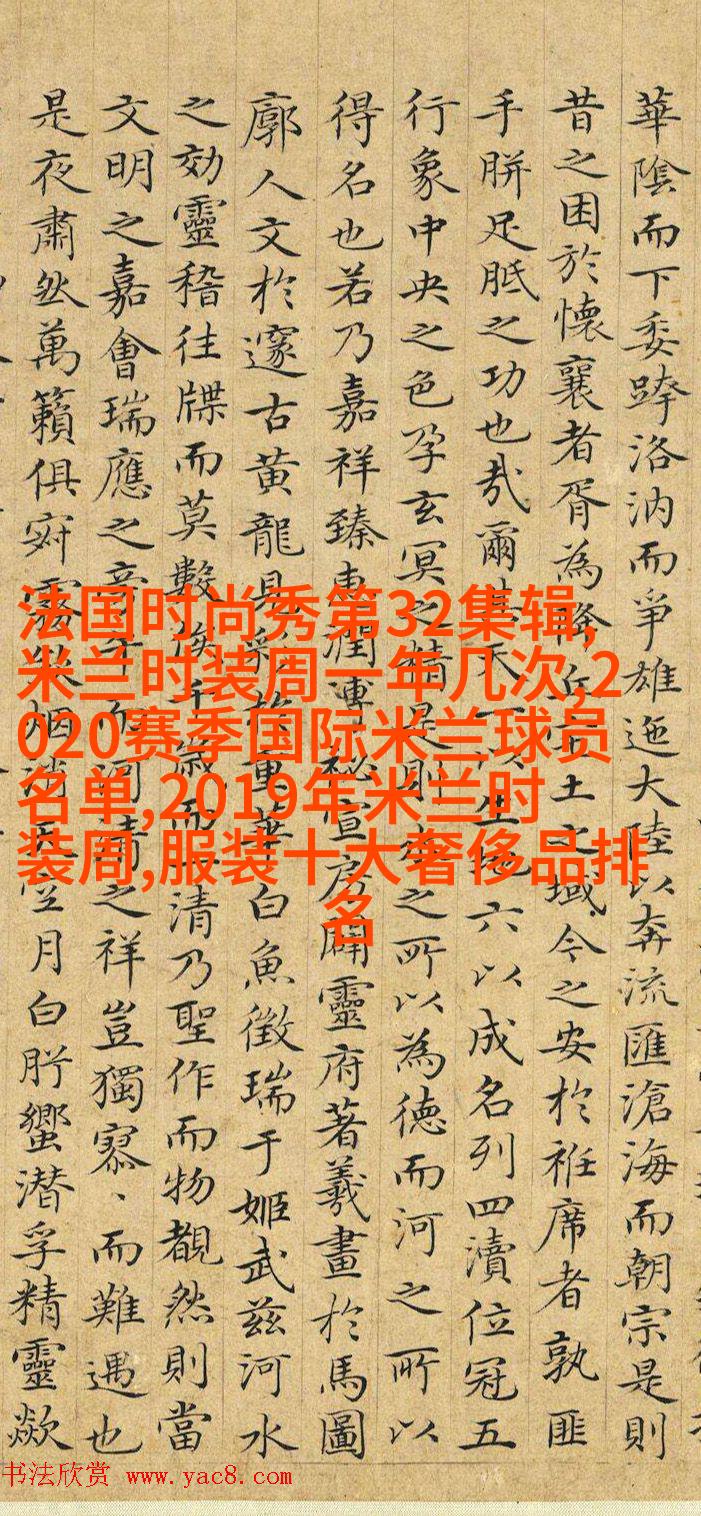 華陰而下委跨洛汭而爭雄迤大陸以奔流匯滄海而朝宗是則
昔之困於懷襄者胥為土之域今之安於袵席者孰匪
手胼足胝之功也哉爾天以生地六以成名列四瀆位冠五
行象中央之色孕玄冥之精是則之所以為德而河之所以
得名也若乃嘉祥臻惠潤溥祕宣房闢靈府著羲畫於馬圖
廓人文於邃古黃龍見重華白魚徵瑞于姬武茲河水
之効靈稽往牒而莫數俟千歲而一清乃聖作而物覩然則當
文明之嘉會瑞應之之祥豈獨寡而難遇也
是夜肅然萬籟俱寂霧烟消空月白肸蠁潛孚精靈歘
法国时尚秀第32集辑,
米兰时装周一年几次,2
020赛季国际米兰球员
名单,2019年米兰时
装周,服装十大奢侈品排
名
书法欣赏 www.yac8.com